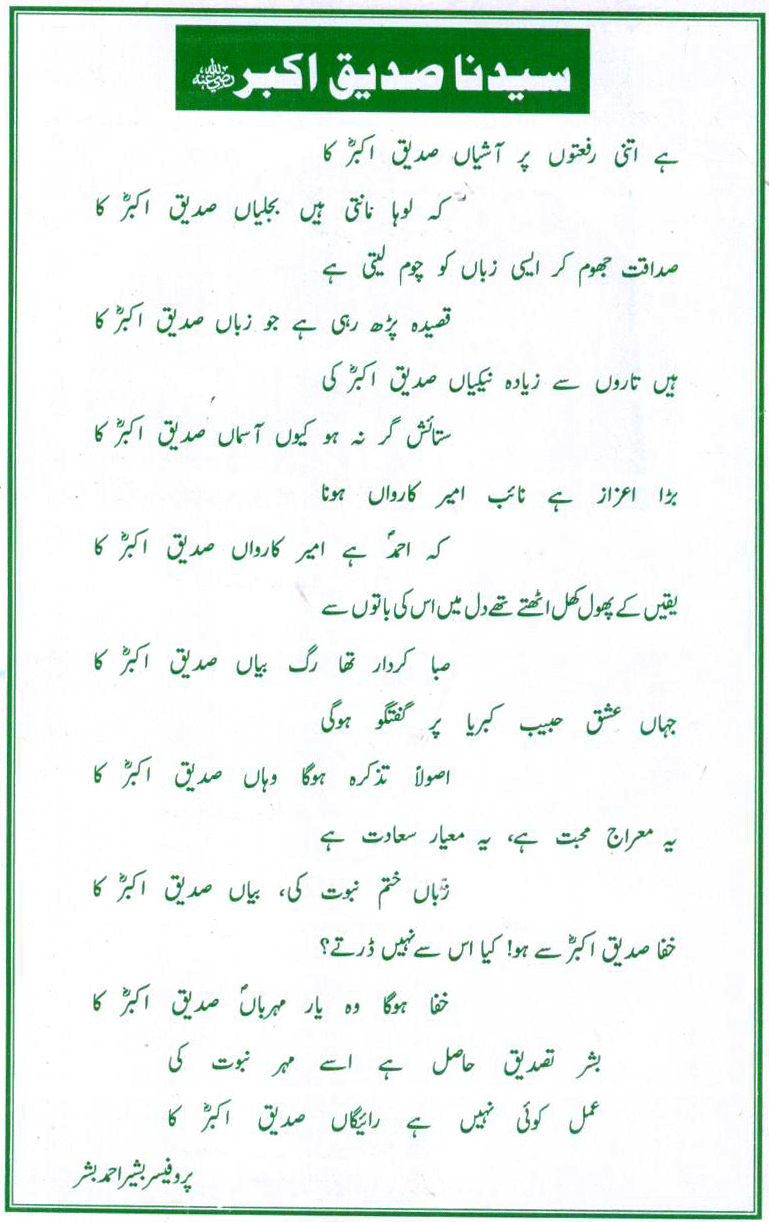 سیدنا صدیق اکبر رضی اللہ عنہ
ہے اتنی رفعتوں پر آشیاں صدیق اکبرؓ کا
کہ لوہا مانتی ہیں بجلیاں صدیق اکبرؓ کا
صداقت جھوم کر ایسی زباں کو چوم لیتی ہے
قصیدہ پڑھ رہی ہے جو زباں صدیق اکبرؓ کا
ہیں تاروں سے زیادہ نیکیاں صدیق اکبرؓ کی
ستائش گر نہ ہو کیوں آسماں صدیق اکبرؓ کا
بڑا اعزاز ہے نائب امیر کارواں ہونا
کہ احمدؐ ہے امیر کارواں صدیق اکبرؓ کا
یقیں کے پھول کھل اٹھتے تھے دل میں اس کی باتوں سے
صبا کردار تھا رگ بیاں صدیق اکبرؓ کا
جہاں عشق حبیب کبریا پر گفتگو ہوگی
اصولاً تذکرہ ہوگا وہاں صدیق اکبرؓ کا
یہ معراج محبت ہے، یہ معیار سعادت ہے
زباں ختم نبوت کی، بیاں صدیق اکبرؓ کا
خفا صدیق اکبرؓ سے ہو! کیا اس سے نہیں ڈرتے؟
خفا ہوگا وہ یار مہرباںؐ صدیق اکبرؓ کا
بشر تصدیق حاصل ہے اسے مہر نبوت کی
عمل کوئی نہیں ہے رائیگاں صدیق اکبرؓ کا
پروفیسر بشیر احمد بشر